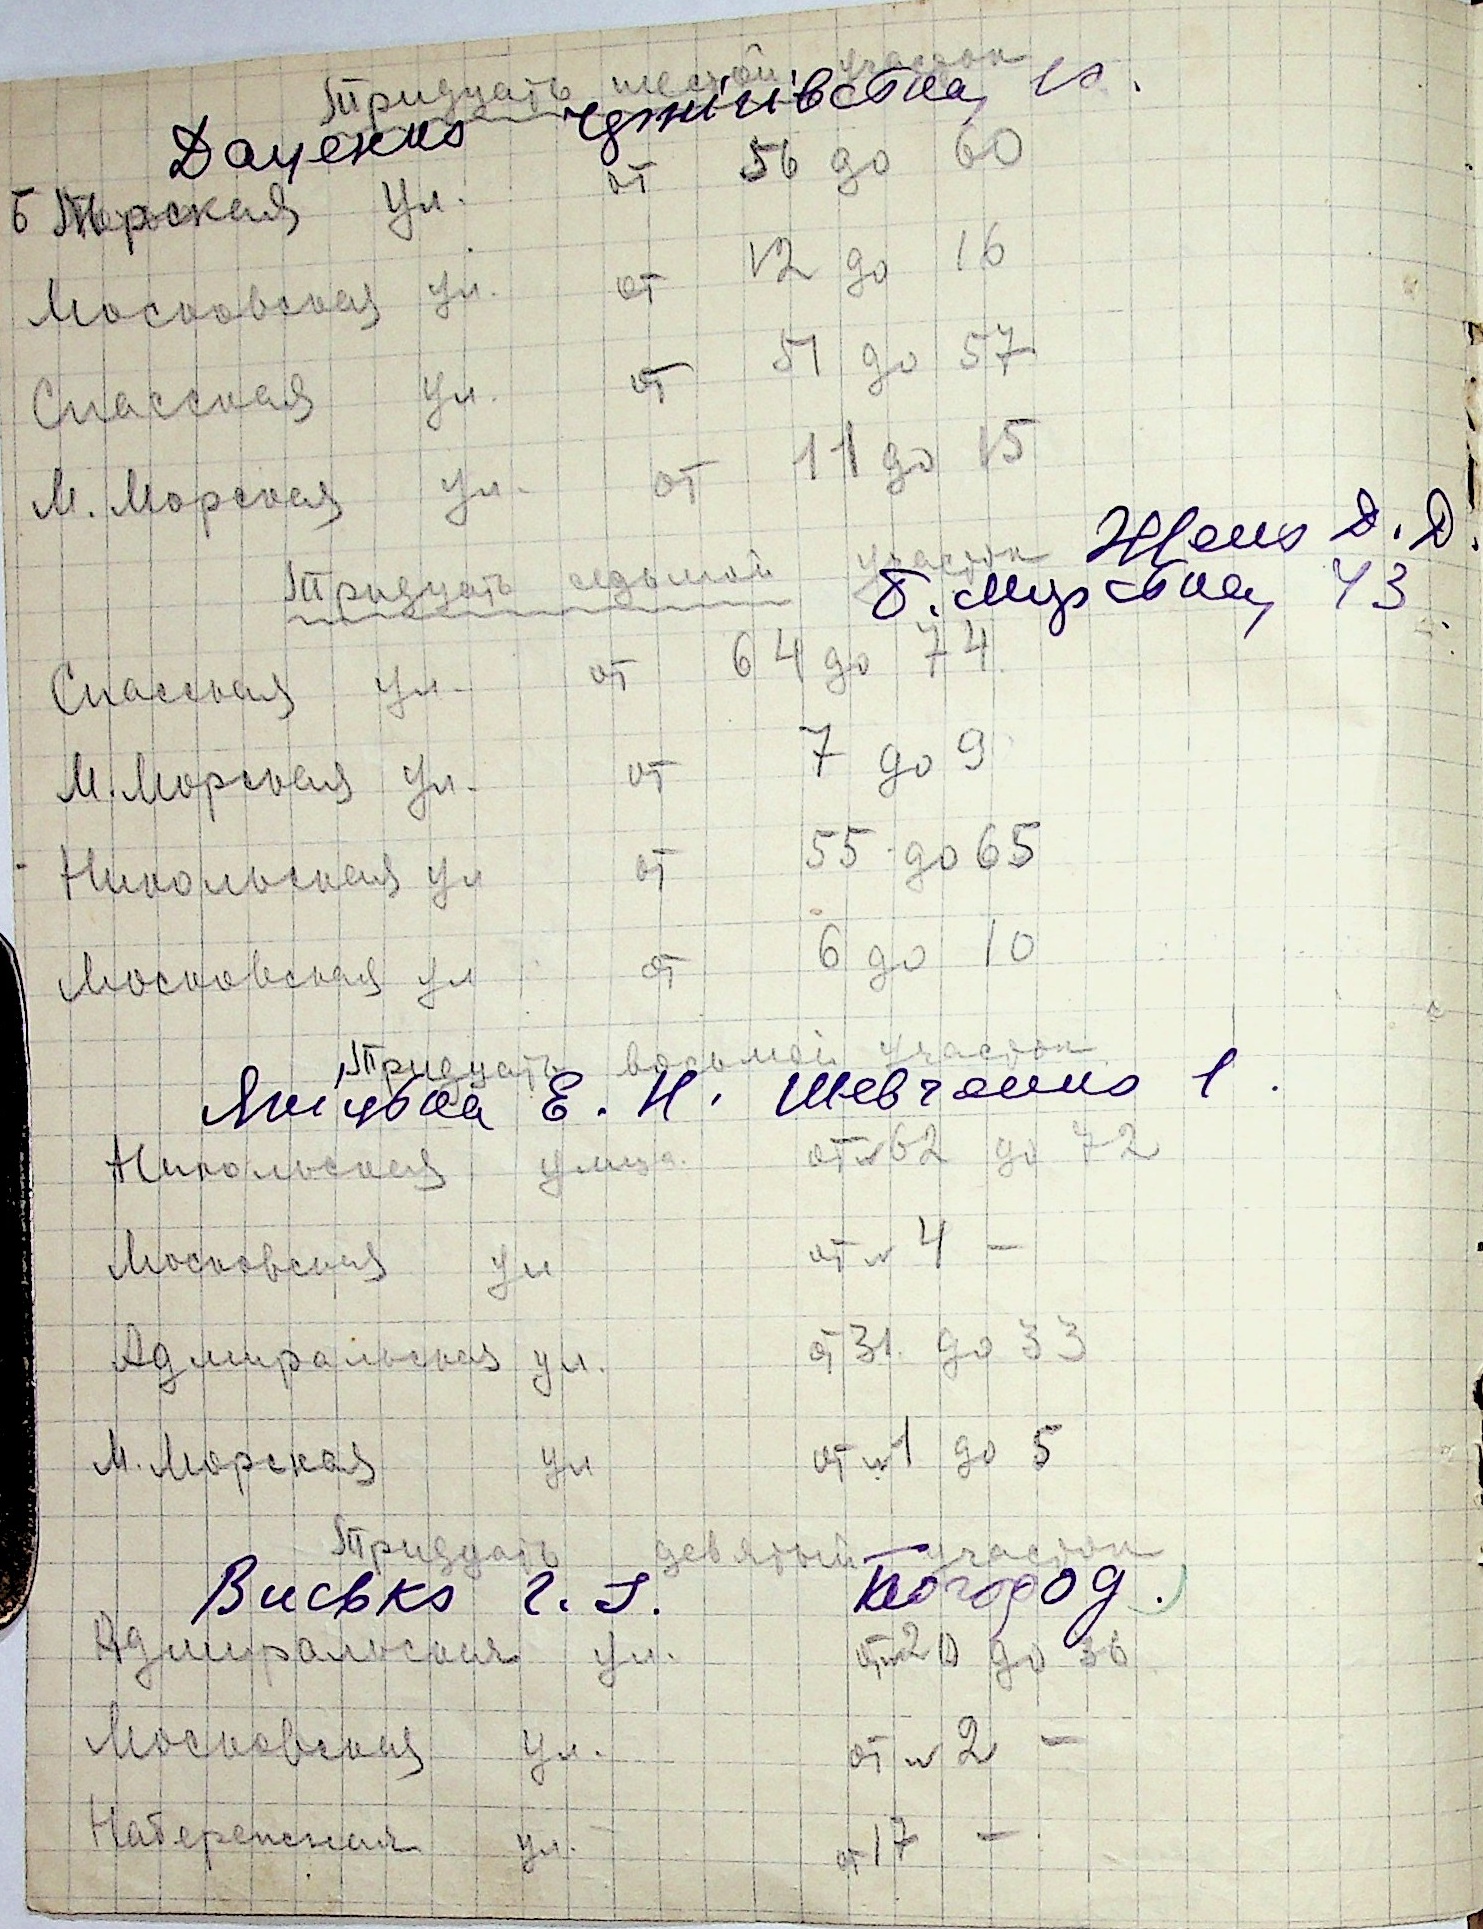 Тридцать шестой участок
Даценко
Б Морская ул. от 56 до 60
Московская ул. от 12 до 16
Спасская ул. от 51 до 57
М. Морская ул. от 11 до 15
Д. Д.
Тридцать седьмой участок
Б. Морська, 43
Спасская ул. от 64 до 74
М. Морская ул. от 7 до 9
Никольская ул от 55 до 65
Московская ул от 6 до 10
Тридцать восьмой участок
Е. Н. Шевченко 1.
Никольская улица. от № 62 до 72
Московская ул от № 4 -
Адмиральская ул. от 31. до 33
М. Морская ул от № 1 до 5
Тридцать девятый участок
Висько Г. І.
Адмиральская ул. от № 20 до 36
Московская ул. от № 2 -
Набережная ул. от 17 -